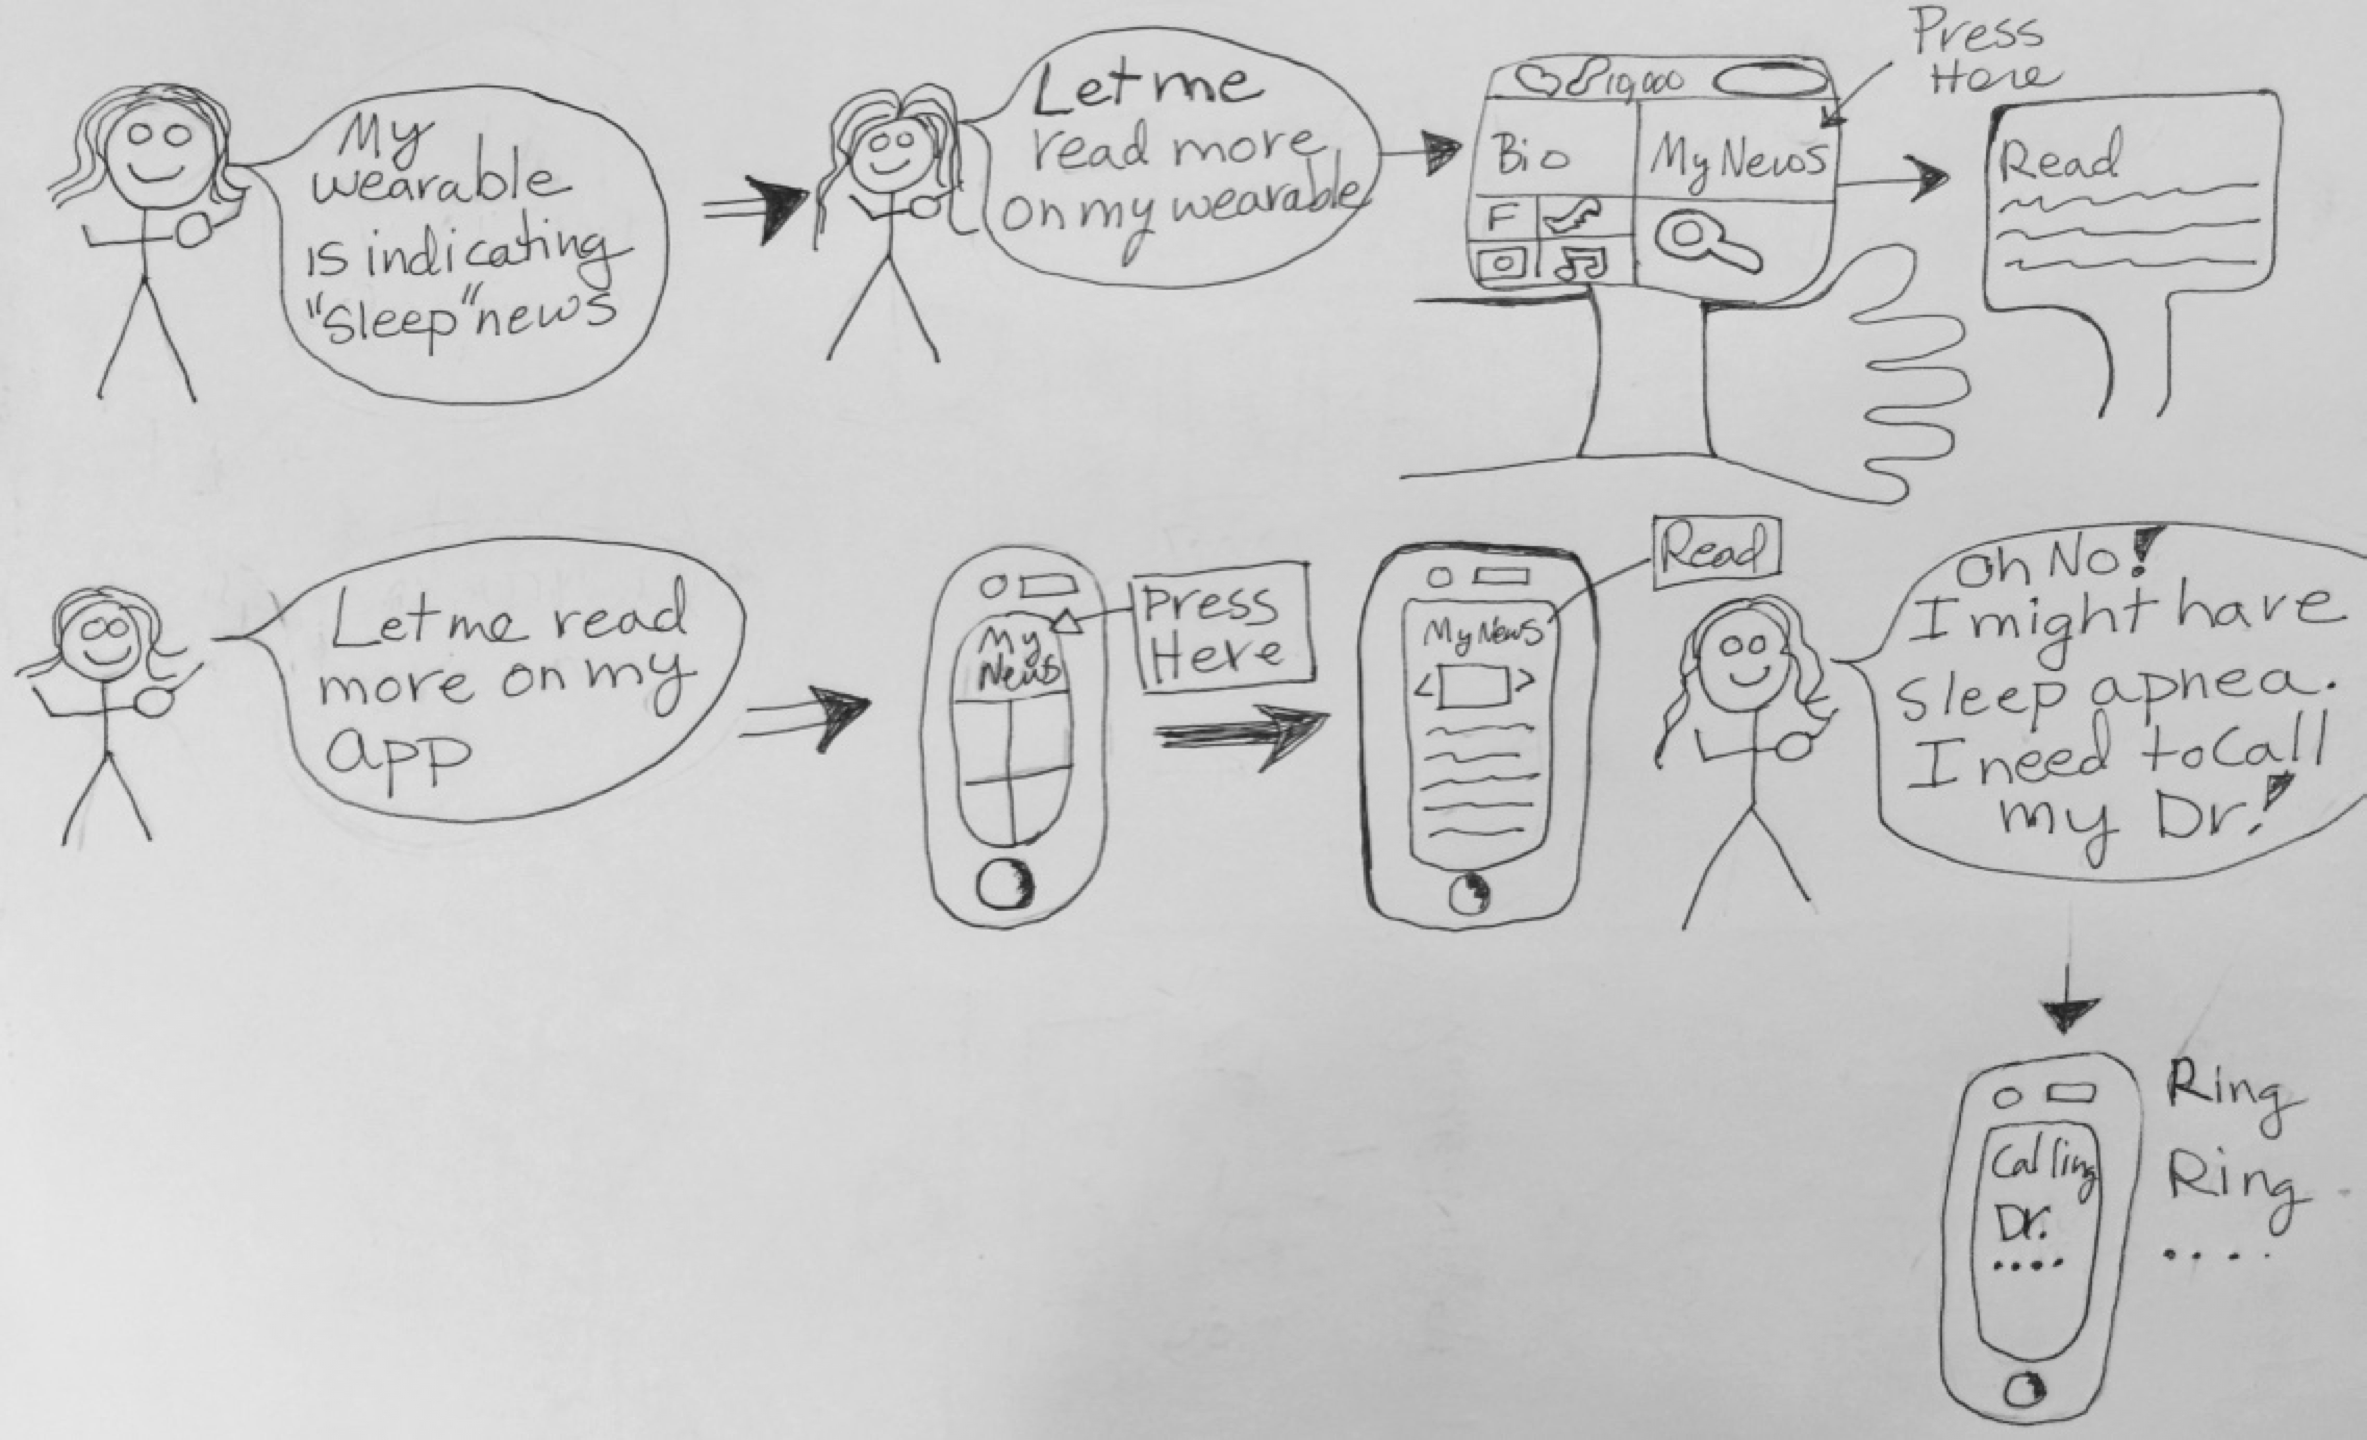 My
wearable
is indicating
"Sleep" news
Let me
read more
on my wearable
19,000
Bio
My News
F
Press
Here
Read
Let me read
more on my
app
My
News
Press
Here
My News
< >
Read
Oh No!
I might have
sleep apnea.
I need to Call
my Dr!
Calling
Dr.
....
Ring
Ring
....